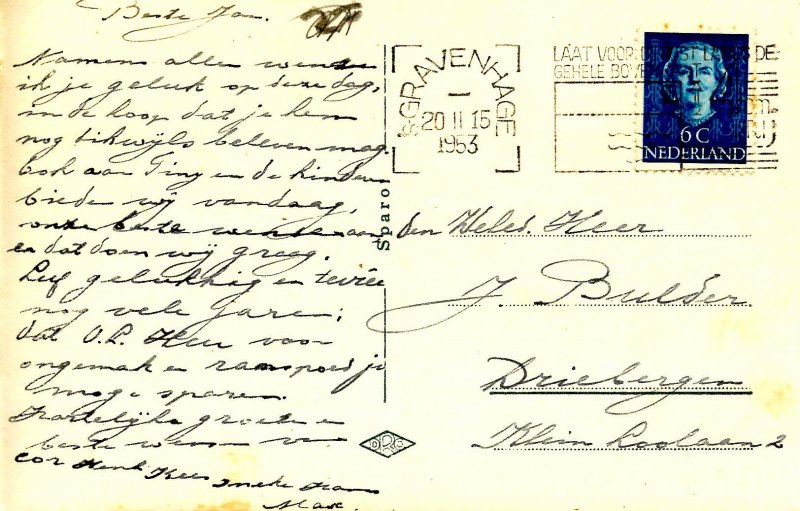 Beste Jan.
Namens allen wensen
ik je geluk op deze dag,
in de hoop dat je hem
nog dikwijls beleven mag.
Ook aan Tiny en de kinderen
bieden wij vandaag,
onze beste wensen aan
en dat doen wij graag.
Leef gelukkig en tevree
nog vele jaren;
dat O.L. Heer voor
ongemak en rampspoed je
moge sparen.
Hartelijke groeten en
beste wensen v
Cor Henk Kees Ineke Hans
Max.
Sparo
'S GRAVENHAGE
20 II 15
1953
LAAT VOOR DE
GEHELE
6 C
NEDERLAND
den Weled. Heer
J. Bulder.
Driebergen
Klein Loolaan 2